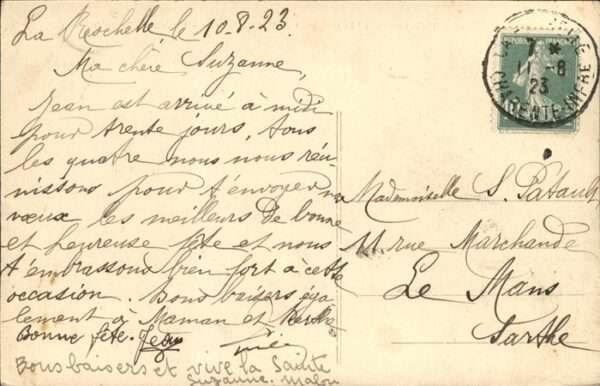 La Rochelle le 10-8-23.
Ma chère Suzanne,
Jean est arrivé à midi
pour trente jours, tous
les quatre nous nous réu-
nissons pour t'envoyer nos
vœux les meilleurs de bonne
et heureuse fête et nous
t'embrassons bien fort à cette
occasion. Bons baisers éga-
lement à Maman et
Bonne fête. Jean
Bons baisers et vive la Sainte
Suzanne. Malou
7 *
11 - 8
23
CHARENTE-INFRE
Mademoiselle S. Patault
11 rue Marchande
Le Mans
Sarthe